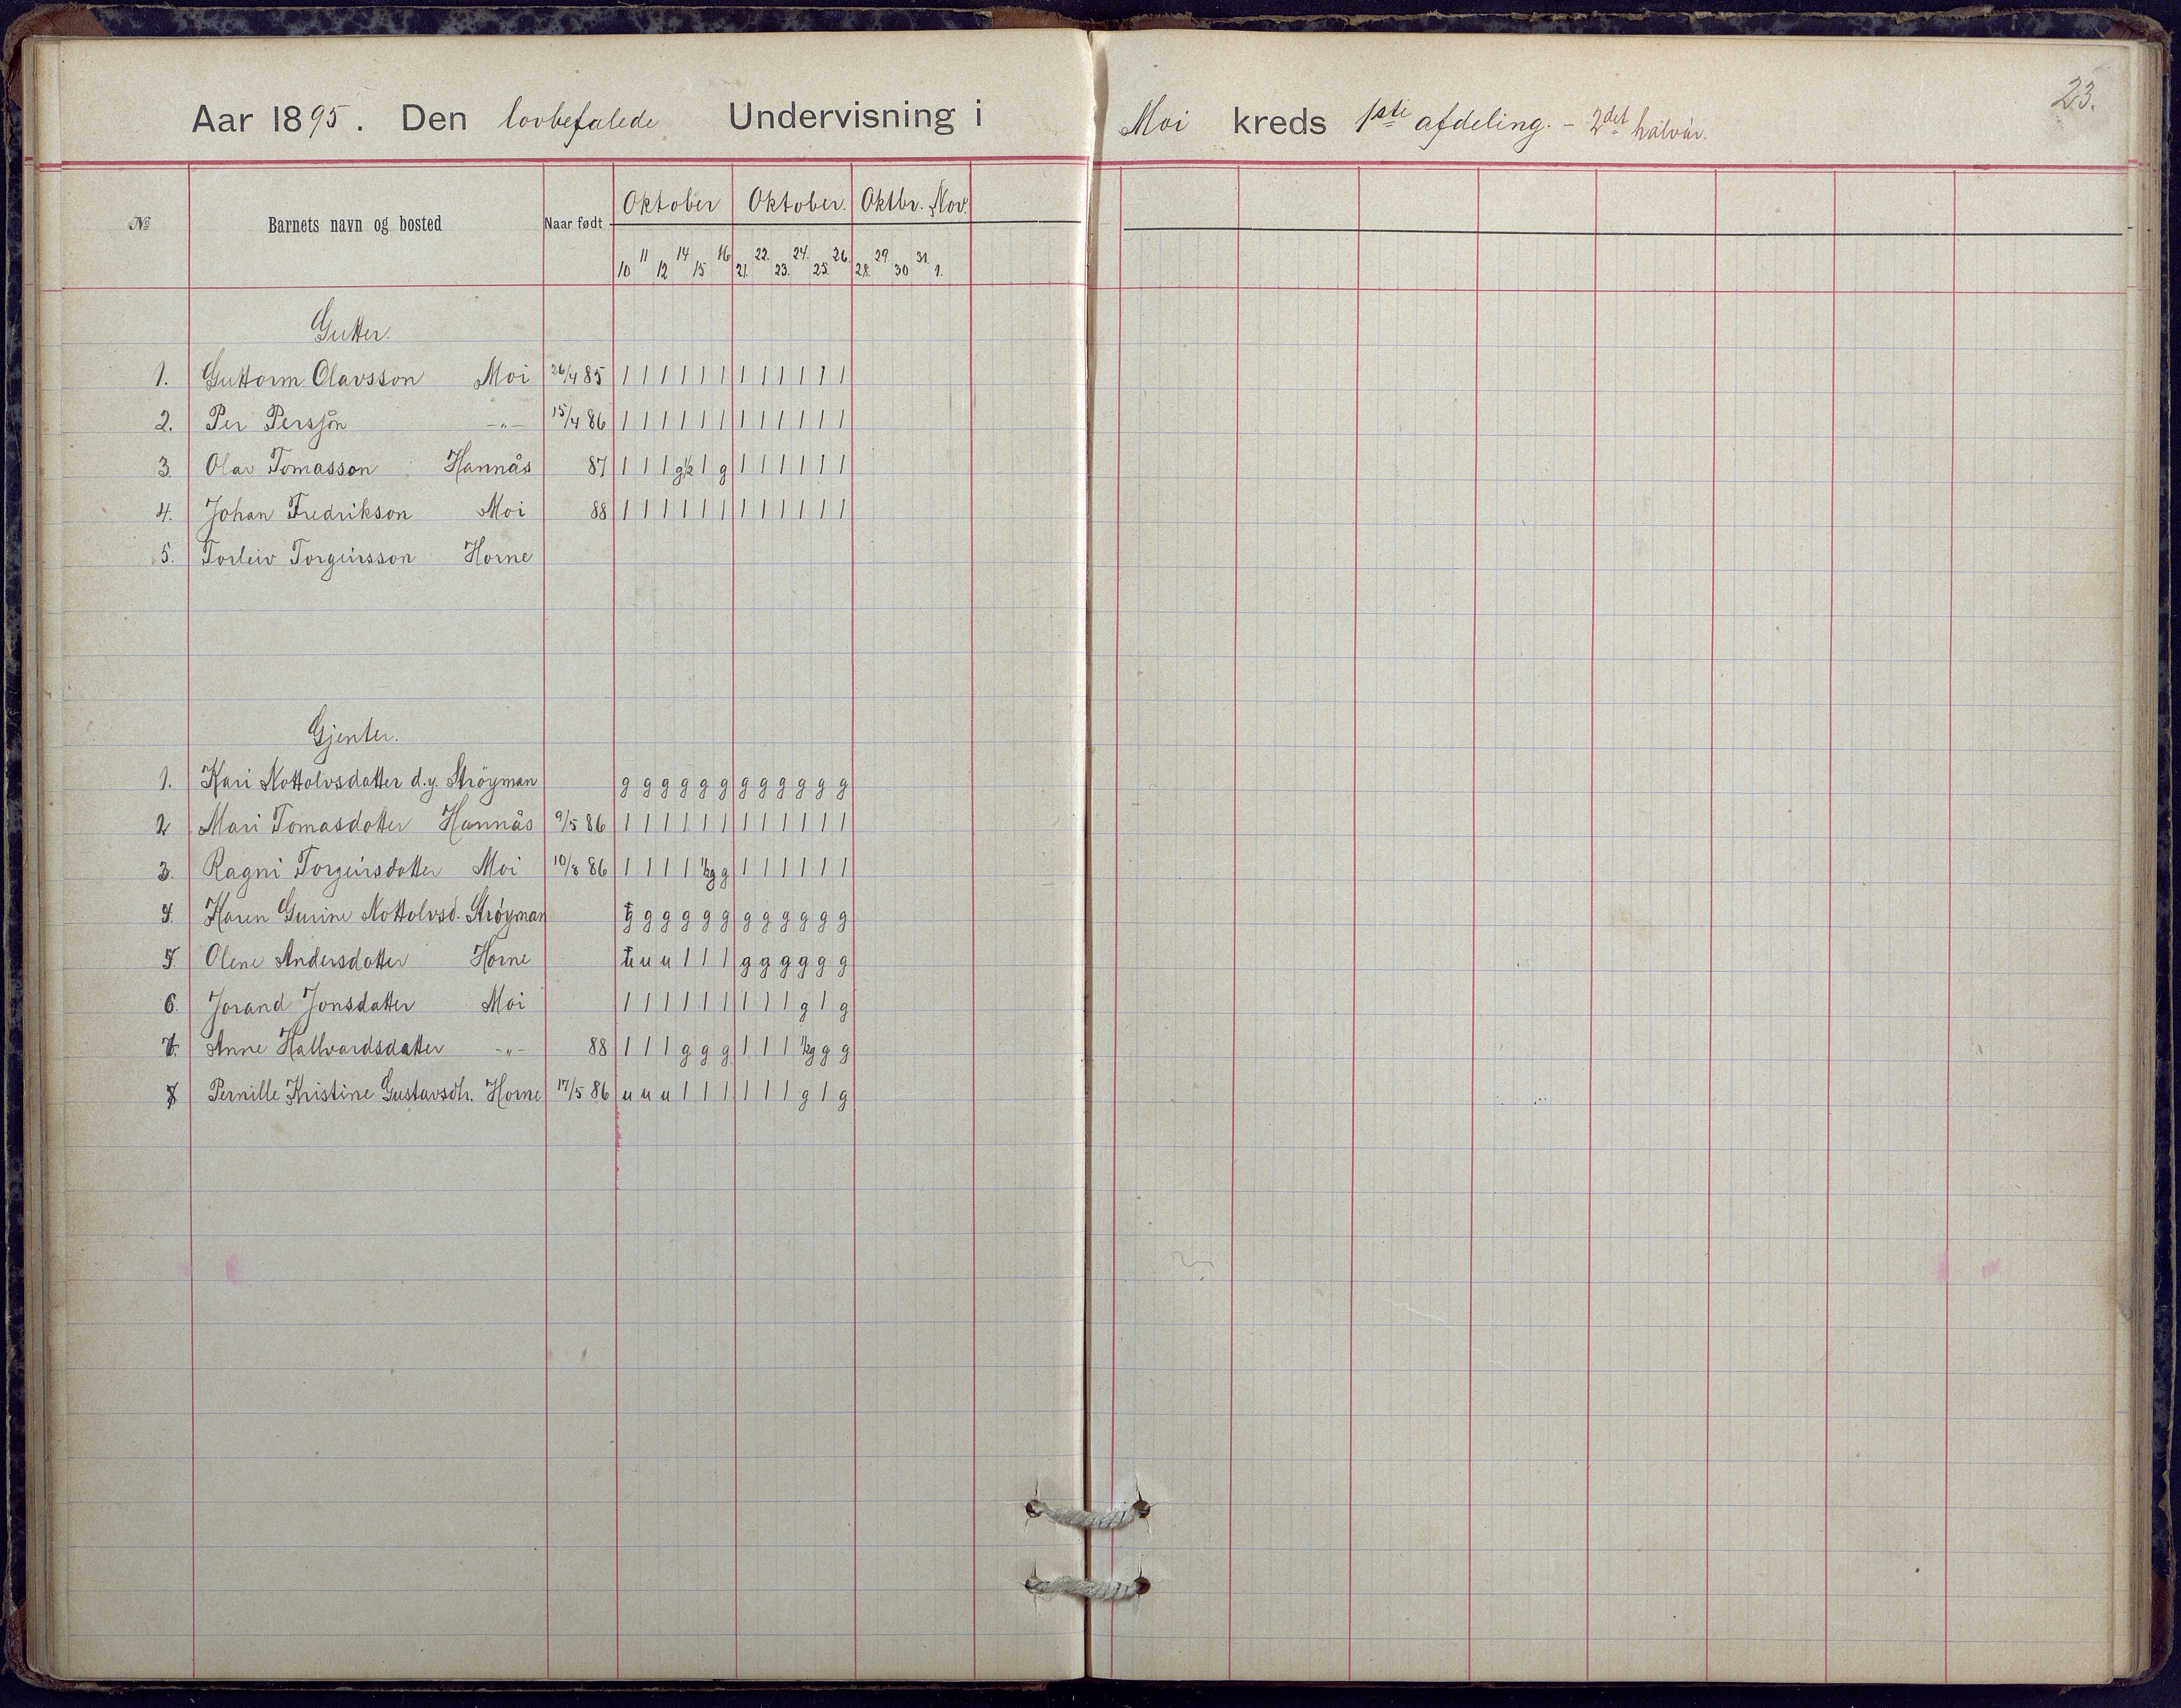 23.
Aar 1895. Den lovbefalede Undervisning i Moi kreds 1ste afdeling. - 2det halvår.
№ Barnets navn og bosted Naar født Oktober Oktober. Oktbr. Nov.
10 11 12 14 15 16 21. 22. 23. 24. 25. 26. 28. 29. 30 31. 1.
Gutter.
1. Guttorm Olavsson Moi 26/4 85 1 1 1 1 1 1 1 1 1 1 1 1
2. Per Persson -"- 15/4 86 1 1 1 1 1 1 1 1 1 1 1 1
3. Olav Tomasson Hannås 87 1 1 1 g½ 1 g 1 1 1 1 1 1
4. Johan Fredrikson Moi 88 1 1 1 1 1 1 1 1 1 1 1 1
5. Torleiv Torgeirsson Horne
Gjenter.
1. Kari Nottolvsdatter d.y. Strøyman g g g g g g g g g g g g
2 Mari Tomasdatter Hannås 9/5 86 1 1 1 1 1 1 1 1 1 1 1 1
3. Ragni Torgeirsdatter Moi 10/8 86 1 1 1 1 ½g g 1 1 1 1 1 1
4. Karen Gurine Nottolvsd. Strøyman g g g g g g g g g g g g
5. Olene Andersdatter Horne u u u 1 1 1 g g g g g g
6. Jorand Jonsdatter Moi 1 1 1 1 1 1 1 1 1 g 1 g
7. Anne Hallvardsdatter -"- 88 1 1 1 g g g 1 1 1 ½g g g
8 Pernille Kristine Gustavsdtr. Horne 17/5 86 u u u 1 1 1 1 1 1 g 1 g